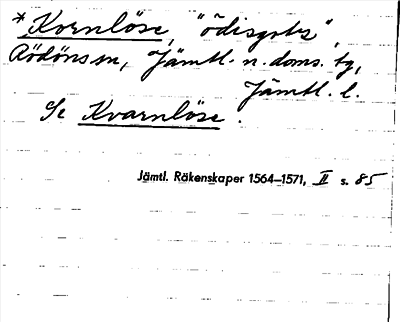 *Kornlöse, "ödisgotz",
Rödöns sn, Jämtl. n. doms. tg,
Jämtl. l.
Se Kvarnlöse.
Jämtl. Räkenskaper 1564–1571, II s. 85